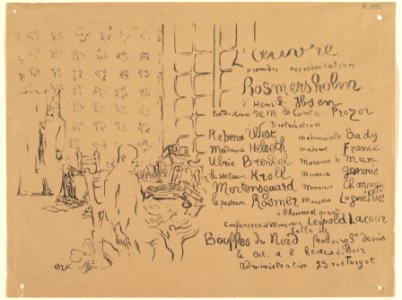 L'œuvre
première représentation
Rosmersholm
d'Henrik Ibsen
traduction de M. le Comte Prozor
Distribution
Rebecca West mademoiselle Bady
Madame Helseth madame France
Ulric Brendel Monsieur de Max
le recteur Kroll Monsieur
Mortensgaard Monsieur Charny
le pasteur Rosmer Monsieur Lugné Poe
à 8 heures
Conférence de Monsieur Léopold Lacour
Salle des
Bouffes du Nord faubourg St Denis
le Oct. à 8 heures
administration 23 rue Turgot